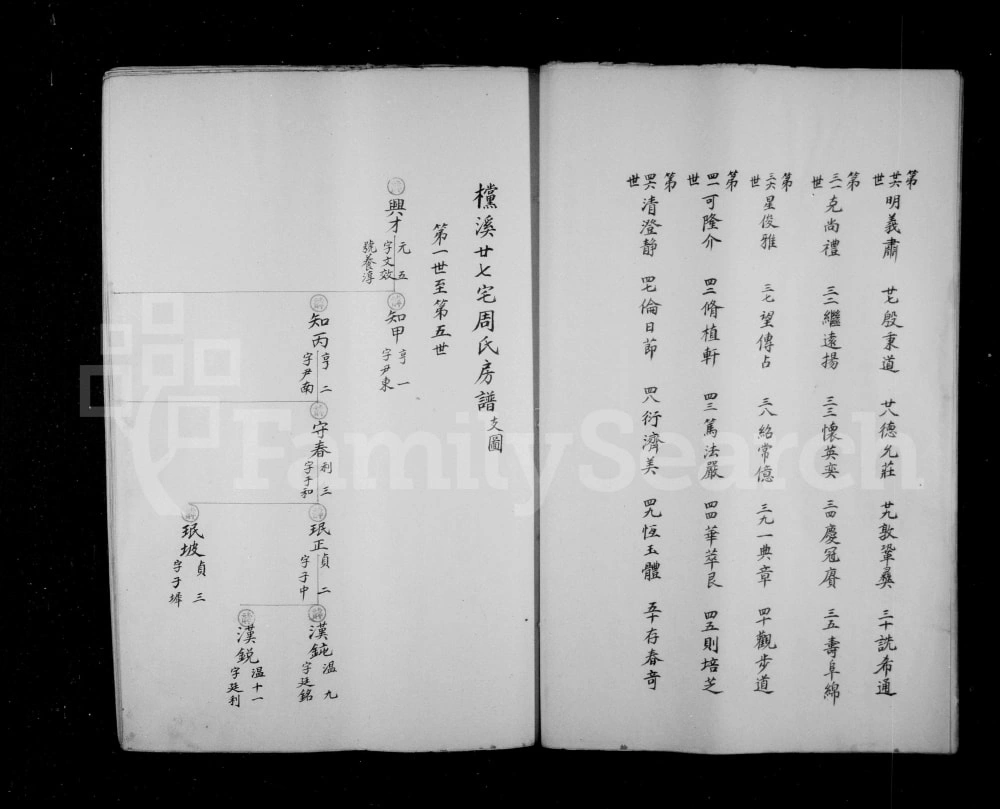 第廿六世 明義肅 廿七殷秉道 廿八德允莊 廿九敦鞏彝 三十詵希通
第三一世 克尚禮 三二繼遠揚 三三懷英奕 三四慶冠賡 三五壽阜綿
第三六世 星俊雅 三七望傳占 三八紹常億 三九一典章 四十觀步道
第四一世 可隆介 四二脩植軒 四三篤法嚴 四四華萃良 四五則培芝
第四六世 清澄靜 四七倫日節 四八衍濟美 四九恆玉體 五十存春奇
欓溪廿七宅周氏房譜 支圖
第一世至第五世
興才 元五 字文效 號養淳
知甲 亨一 字尹東
知丙 亨二 字尹南
守春 利三 字于和
珉正 貞二 字于中
珉坡 貞三 字于墀
漢鈍 溫九 字廷銘
漢銳 溫十一 字廷利
FamilySearch